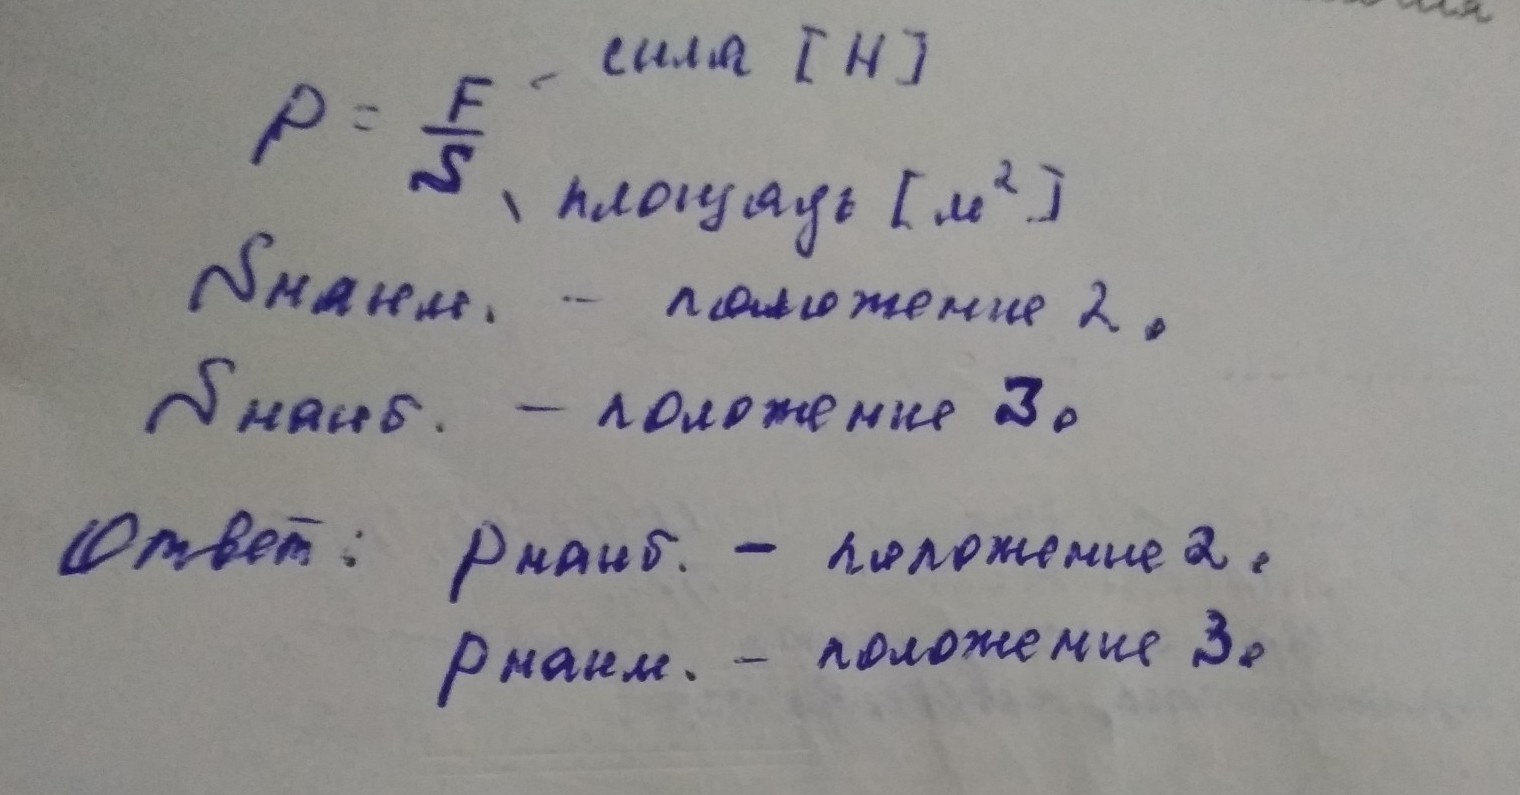 p = F/S - сила [Н]
площадь [м²]
Sнаим. - положение 2.
Sнаиб. - положение 3.
Ответ: pнаиб. - положение 2.
pнаим. - положение 3.